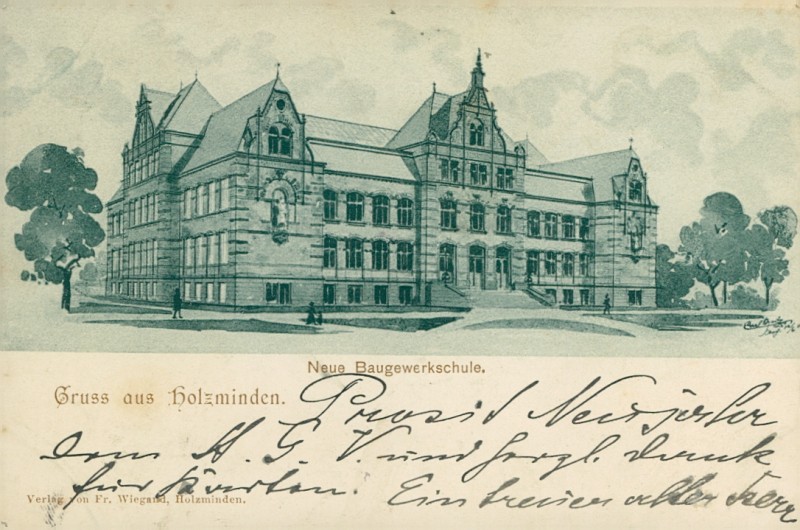 Neue Baugewerkschule.
Gruss aus Holzminden.
Prosit Neujahr
dem A. G. V. und herzl. Dank
für Karten. Ein treuer alter Herr
Verlag von Fr. Wiegand, Holzminden.